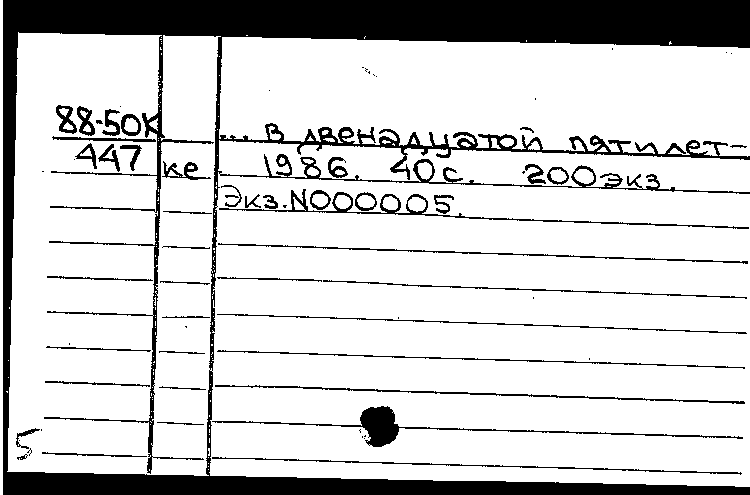 88-50К ... в двенадцатой пятилет-
447 ке 1986. 40 с. 200 экз.
Экз.N000005.
5